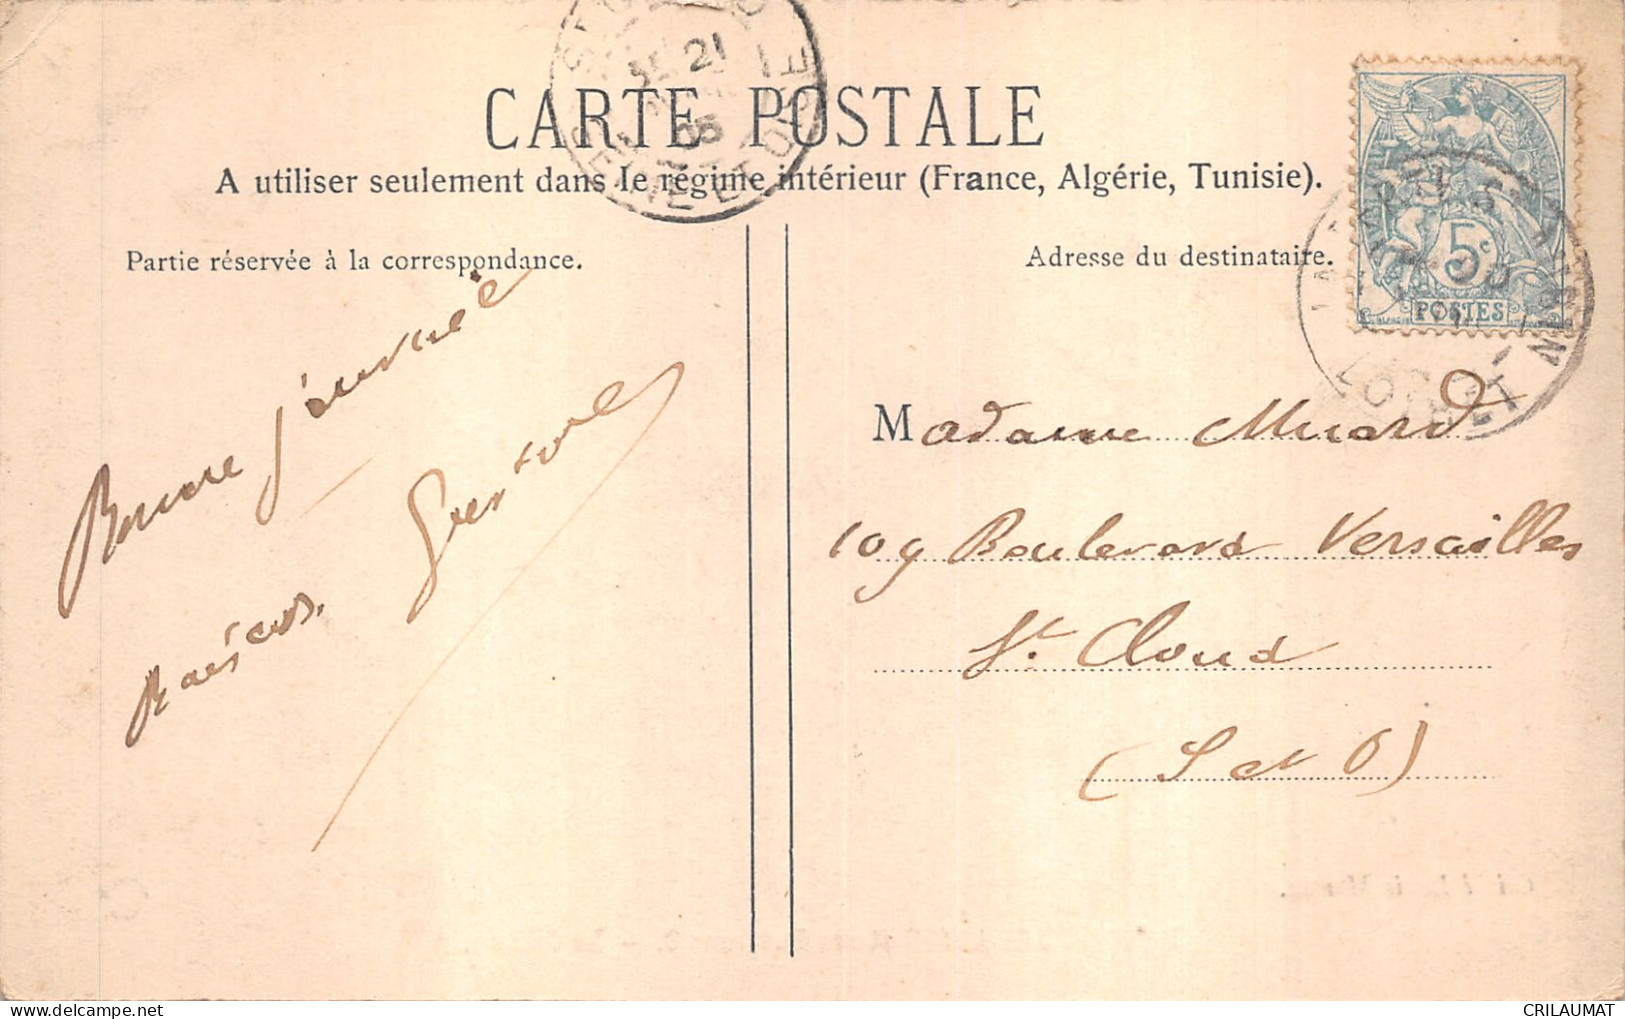 CARTE POSTALE
A utiliser seulement dans le régime intérieur (France, Algérie, Tunisie).
Partie réservée à la correspondance.
Adresse du destinataire.
5c
POSTES
LOIRET
21
05
SEINE ET OISE
Bonne journée
baisers.
Madame Muard
109 Boulevard Versailles
St. Cloud
(S et O)
CRILAUMAT